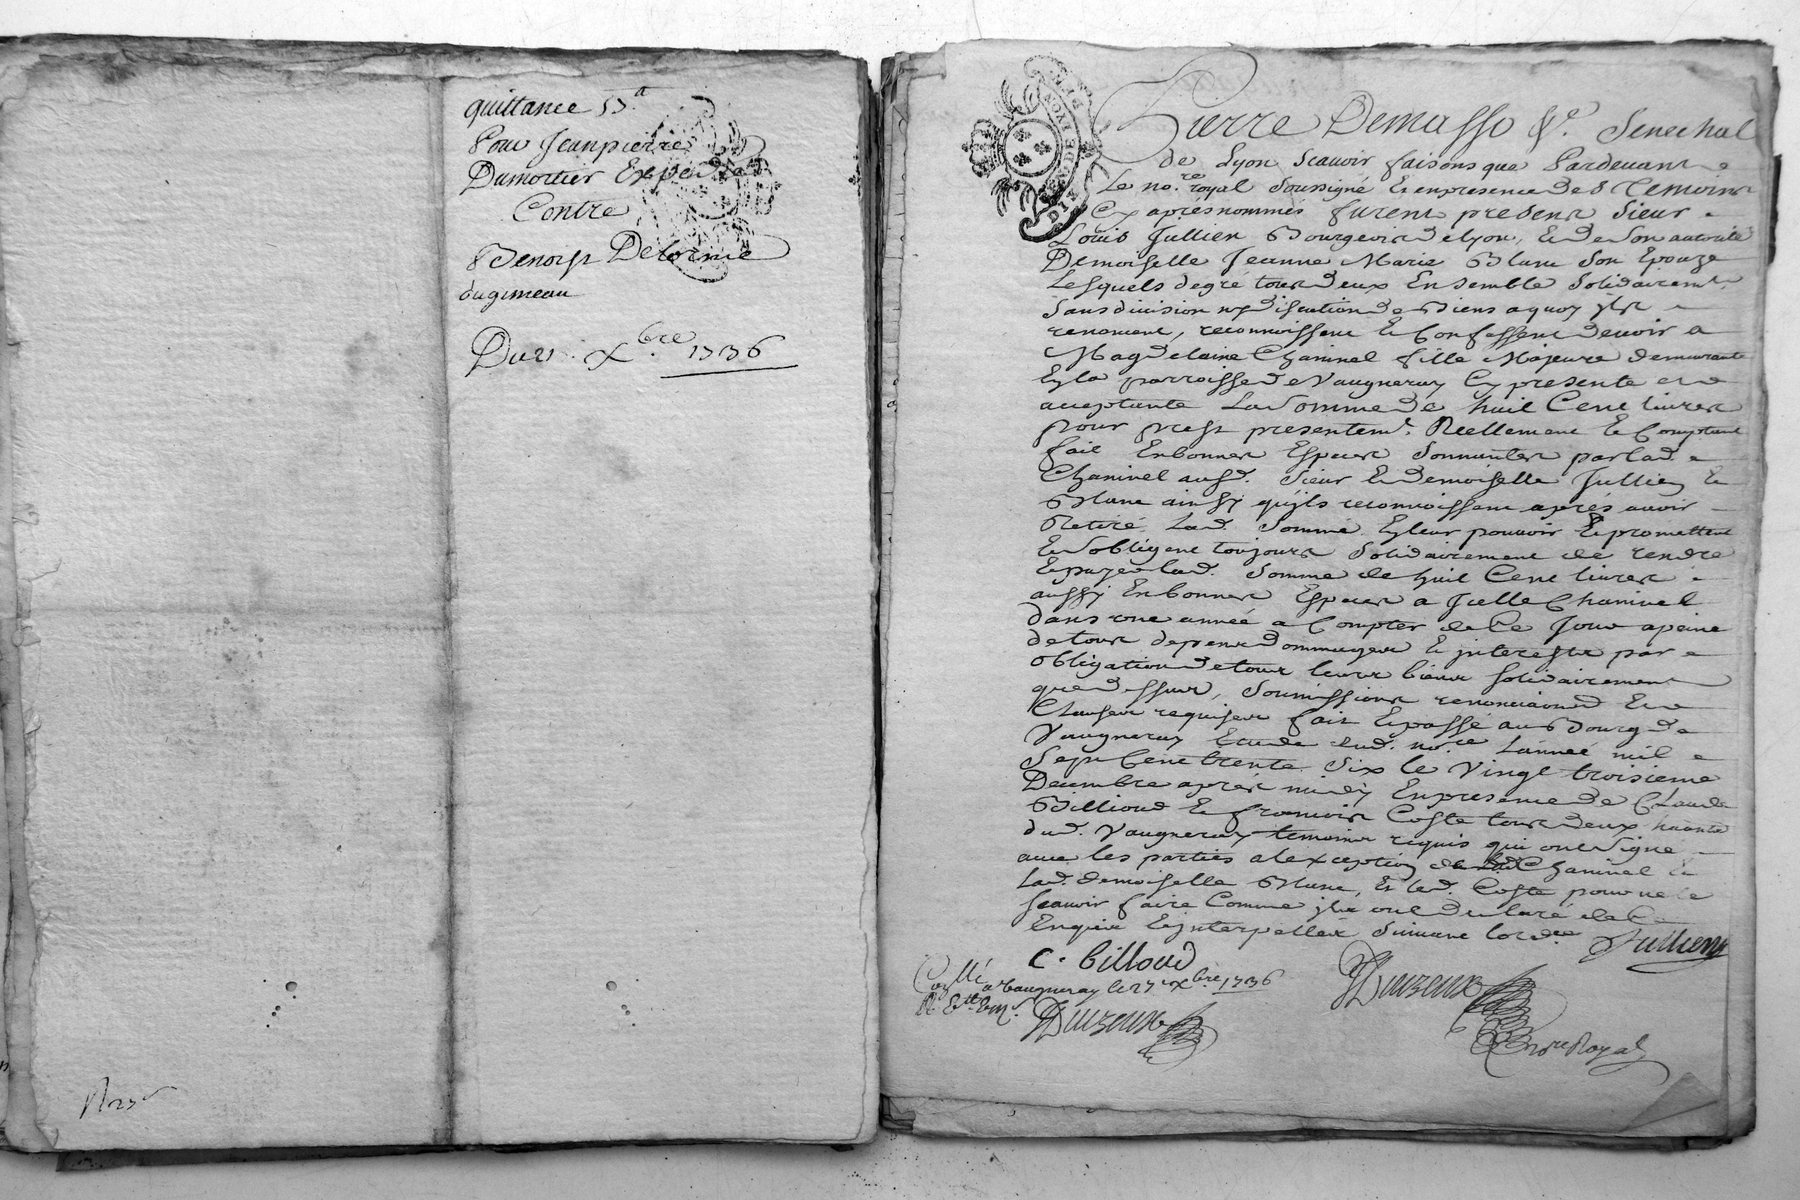 quittance 53.tt
Pour Jeanpierre
Dumortier Exped
Contre
Benoist Delorme
dugimeau
Du 21 xbre 1736
DIX DEN GE LYON
Pierre Demasso &c. Senechal
de Lyon Scavoir faisons que Pardevant
Le no.re royal Soussigné Et en presence des Temoins
Cy aprés nommés furent presents Sieur
Louis Jullien Bourgeois de lyon, Et de Son autorité
Demoiselle Jeanne Marie Blanc Son Epouze
Lesquels de gré tous deux Ensemble Solidairemt.
Sans division ny discution de Biens a quoy ils
renoncent, reconnoissent Et Confessent devoir a
Magdelaine Chaninel fille Majeure demeurante
En la parroisse de Vaugneray Cy presente et
acceptante La Somme de huit Cent livres
pour prest presentemt. Reellement Et Comptant
fait En bonnes Especes Sonnantes par lad.
Chaninel ausd. Sieur Et demoiselle Jullien Et
Blanc ainsy qu'ils reconnoissent aprés avoir
Retiré Lad. Somme En leur pouvoir Et promettent
Et Sobligent toujours Solidairement de rendre
Et payer lad. Somme de huit Cent livres
aussy En bonnes Especes a Jcelle Chaninel
dans une année a Compter de Ce Jour a peine
de tous depens dommages Et jnterests par
obligation de tous leurs biens solidairement
que dessus, Soumissions renonciaons Et
Clauses requises fait Et passé au Bourg de
Vaugneray Etude dud. no.re L'année mil
Sept Cent trente Six le Vingt troisieme
Decembre aprés midy En presence de Claude
Billioud Et francois Coste tous deux habitants
dud. Vaugneray temoins requis qui ont Signé
avec les parties a lexception de lad. Chaninel Et
Lad. demoiselle Blanc, Et led. Coste pour ne le
Scavoir faire Comme ils ont declaré de Ce
Enquis Et jnterpellés Suivant lordce. Jullien
C. billoud
Conllé a Vaugneray le 27 xbre 1736
Duizeux
Duizeux
nore Royal